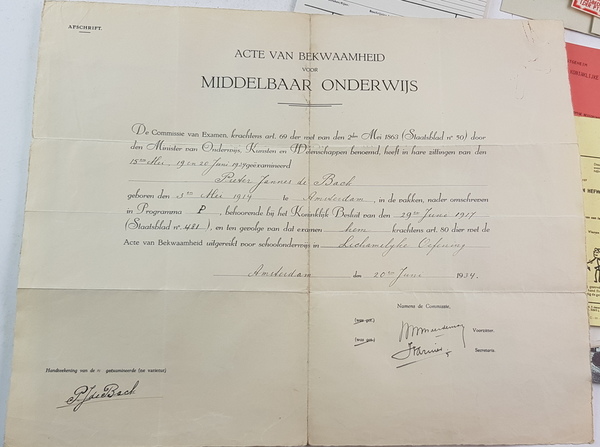 AFSCHRIFT.
ACTE VAN BEKWAAMHEID
VOOR
MIDDELBAAR ONDERWIJS
De Commissie van Examen, krachtens art. 69 der wet van den 2den Mei 1863 (Staatsblad nº 50) door
den Minister van Onderwijs, Kunsten en Wetenschappen benoemd, heeft in hare zittingen van den
15den Mei, 19 en 20 Juni 1934 geëxamineerd
Pieter Jannes de Bach
geboren den 3den Mei 1914 te Amsterdam, in de vakken, nader omschreven
in Programma P, behoorende bij het Koninklijk Besluit van den 29sten Juni 1917
(Staatsblad nº 481), en ten gevolge van dat examen hem krachtens art. 80 dier wet de
Acte van Bekwaamheid uitgereikt voor schoolonderwijs in Lichamelijke Oefening
Amsterdam den 20sten Juni 1934.
Namens de Commissie,
(was get.) Voorzitter.
(was get.) Secretaris.
Handteekening van de geëxamineerde
P.J. de Bach